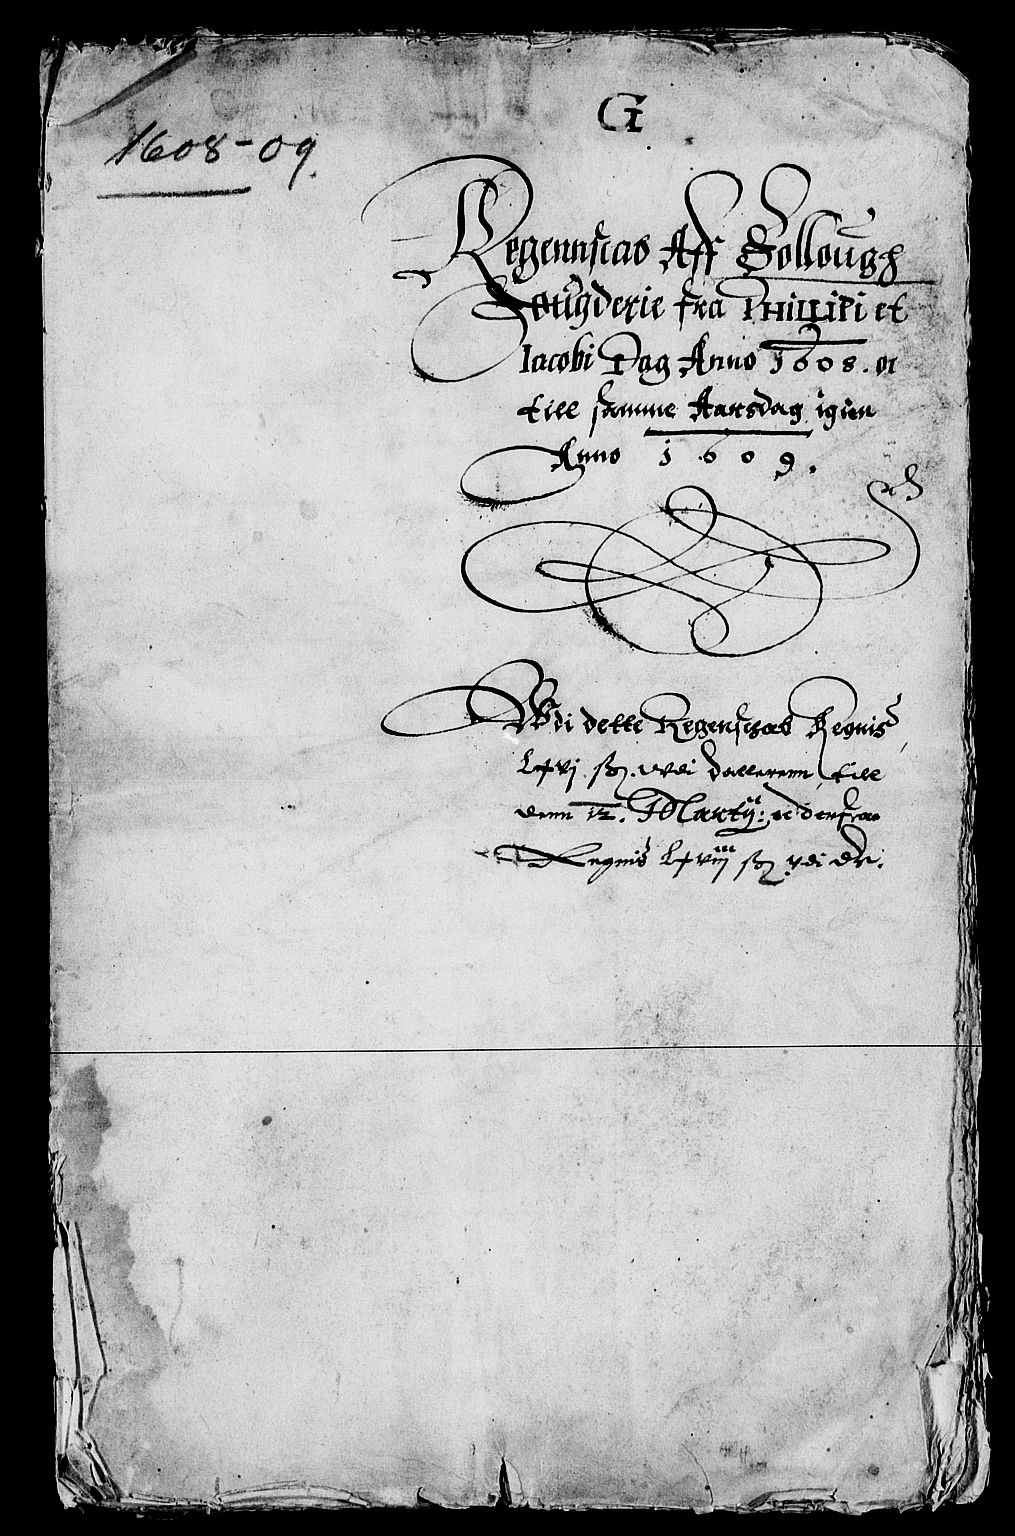 G
1608-09
Regennscab Aff Sollough
Rettigderie fra Phillipi et
Iacobi Dag Anno 1608. oc
till samme Aarsdag igien
Anno 1609.
Wdi dette Regenschab Regnis
Lxvj sz. wdi dallerenn till
denn 12. Martij: oc derfra
Regnis Lxviij sz wdi dlr.